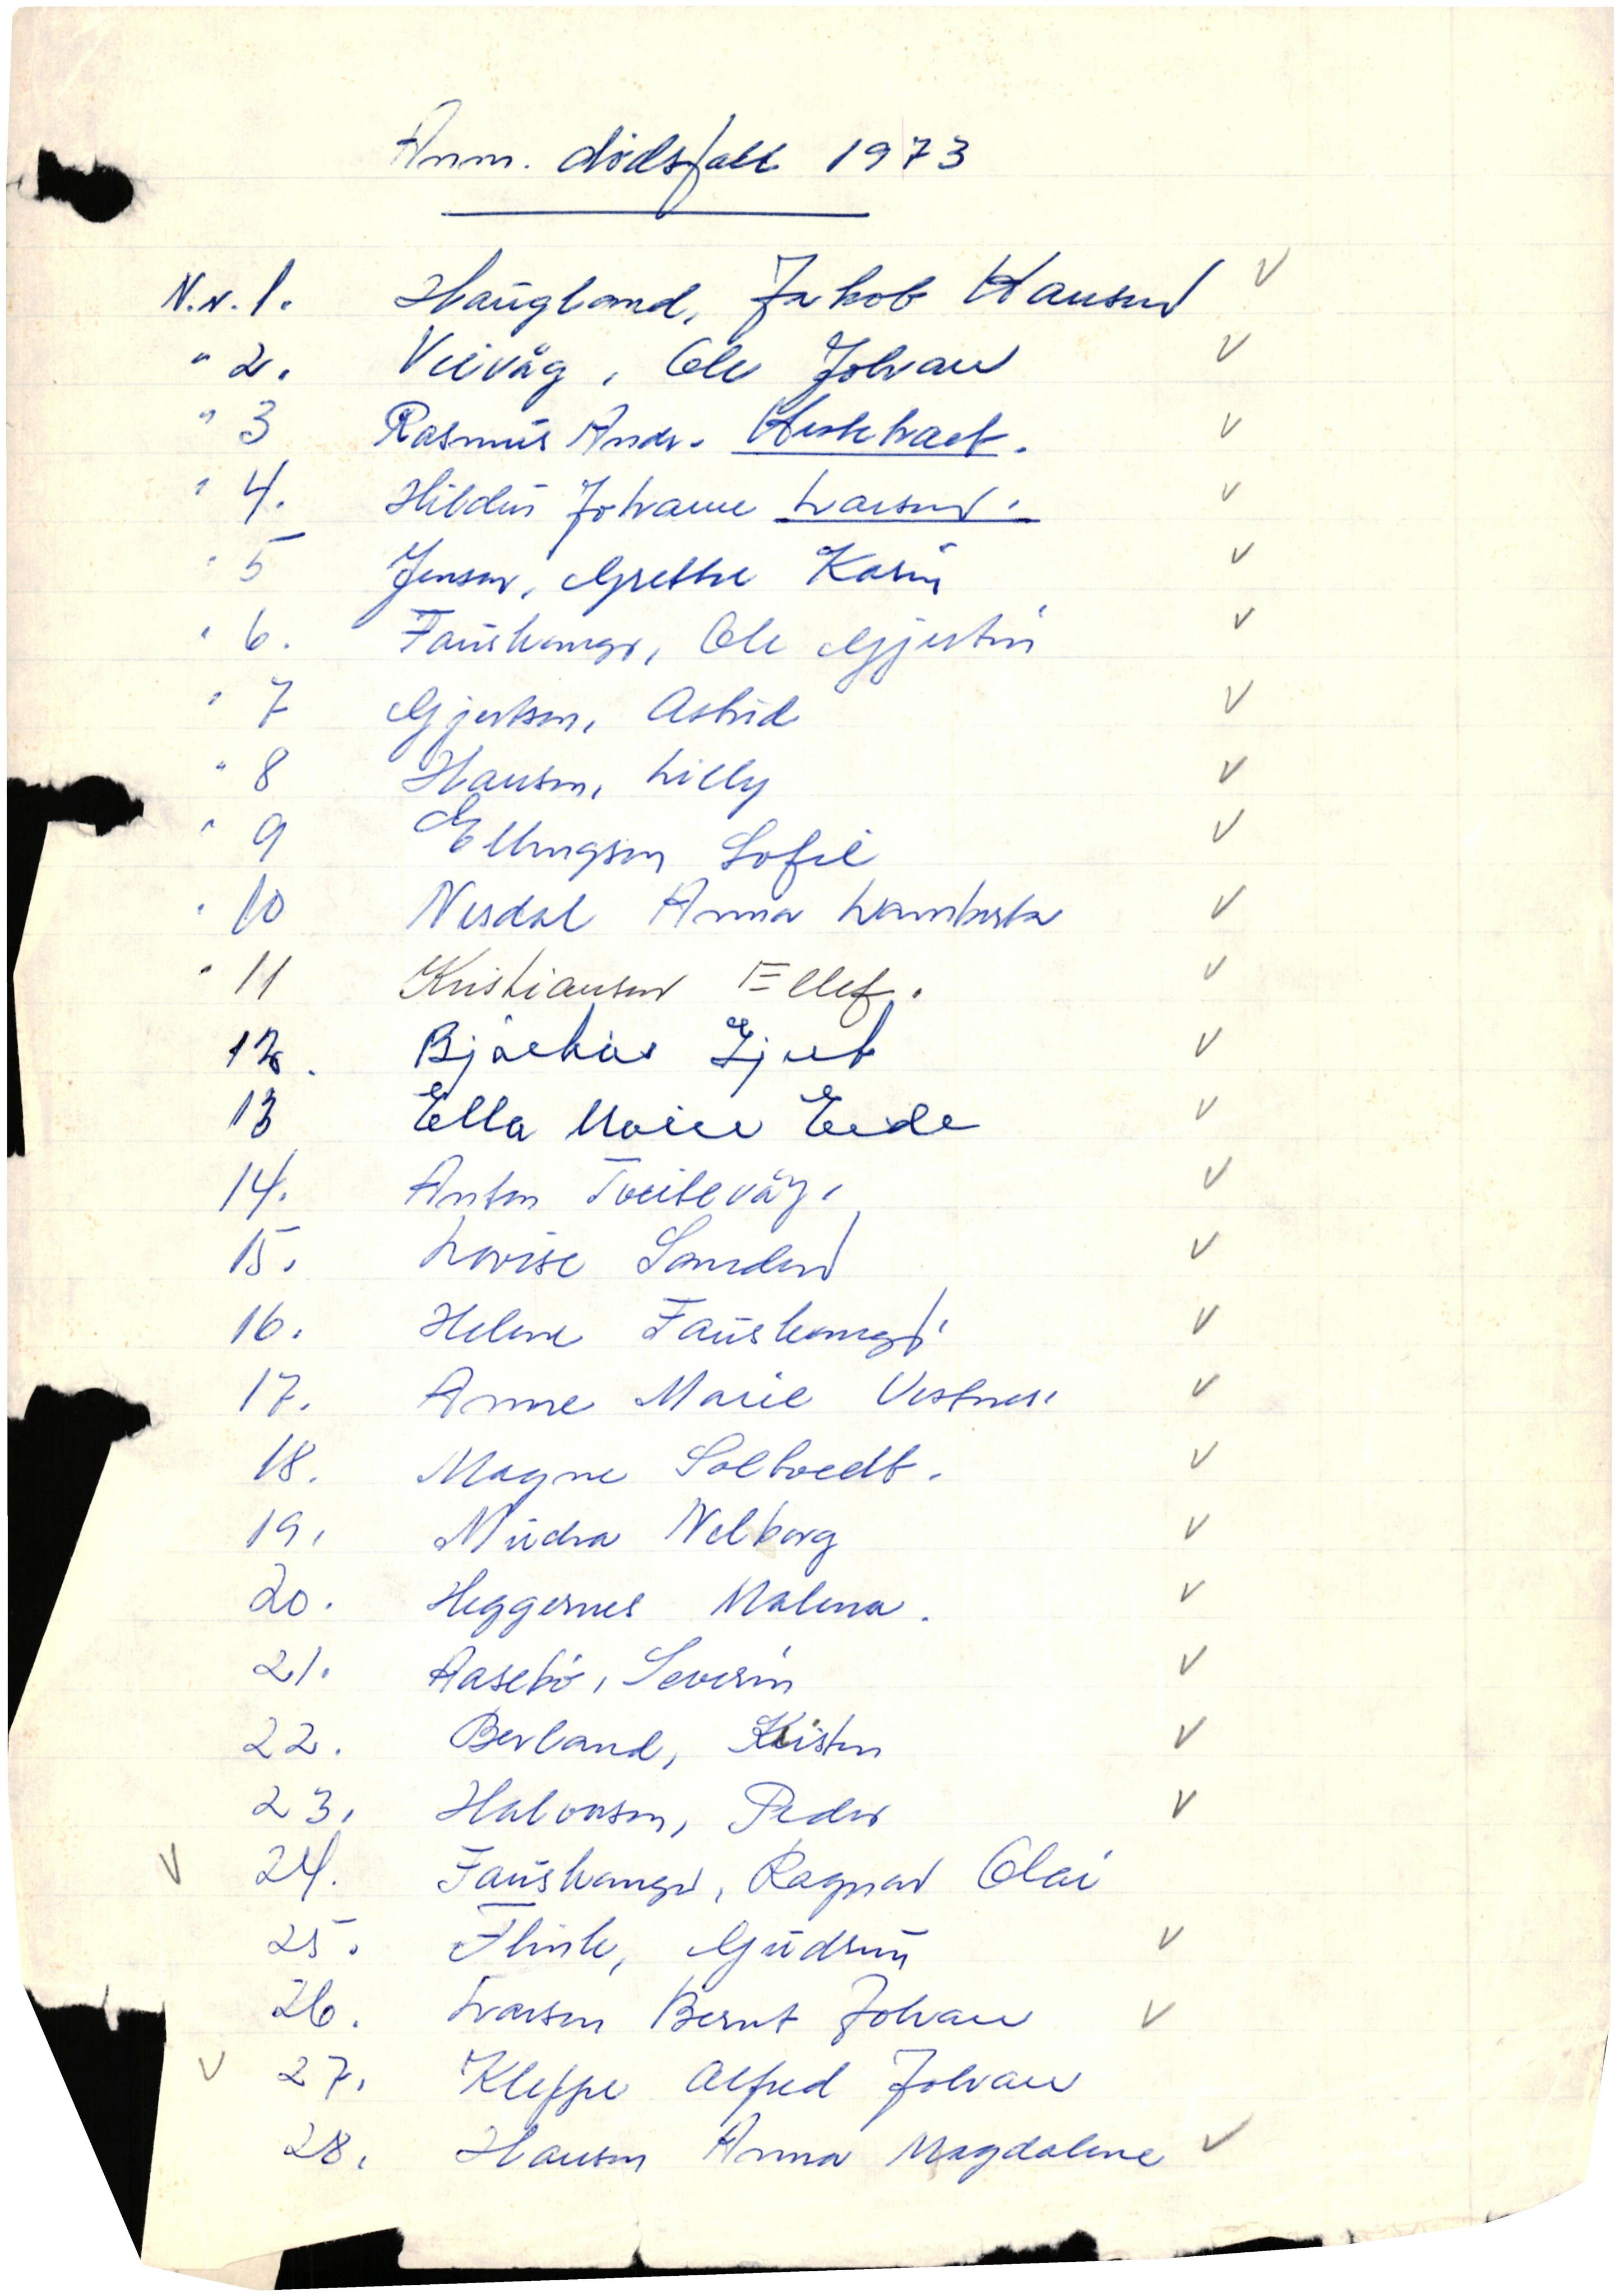 Anm. dödsfall 1973
N.r. 1. Haugland, Jakob Hansen V
" 2. Veivåg, Ole Johan V
" 3 Rasmus Andr. V
" 4. Hildur Johanne Larsen. V
" 5 Jensen, Grethe Karin V
" 6. Fauskanger, Ole Gjertin V
" 7 Gjertsen, Astrid V
" 8 Hansen, Lilly V
" 9 Ellingsen Sofie V
" 10 Nesdal Anna Lamberta V
" 11 Kristiansen Ellef. V
12. Gjert V
13 Ella Marie Eide V
14. Anton Tveitevåg. V
15. Lovise Landro V
16. Helene Fauskanger V
17. Anne Marie Vestnes. V
18. Magne Soltvedt. V
19. Nelborg V
20. Heggernes Malena. V
21. Aasebö, Severin V
22. Berland, Kristen V
23. Halvorsen, Peder V
V 24. Fauskanger, Ragnar Olai
25. Flink, Gudrun V
26. Larsen Bernt Johan V
V 27. Kleppe Alfred Johan
28. Hansen Anna Magdalene V